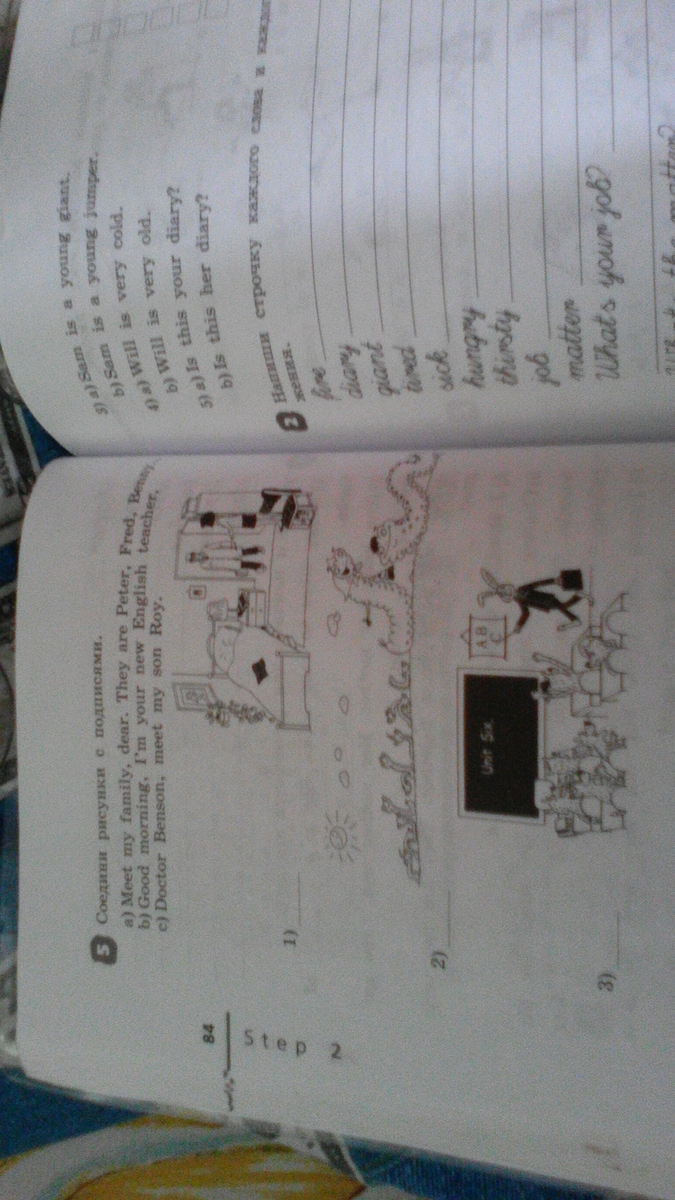 5 Соедини рисунки с подписями.
a) Meet my family, dear. They are Peter, Fred, Benny
b) Good morning, I'm your new English teacher.
c) Doctor Benson, meet my son Roy.
1)
2)
Unit Six
A B
C
3)
84
Step 2
3) a) Sam is a young giant.
b) Sam is a young jumper.
4) a) Will is very cold.
b) Will is very old.
5) a) Is this your diary?
b) Is this her diary?
2 Напиши строчку каждого слова и
жения.
diary
giant
tired
sick
hungry
thirsty
job
matter
What's your job?
the matter?